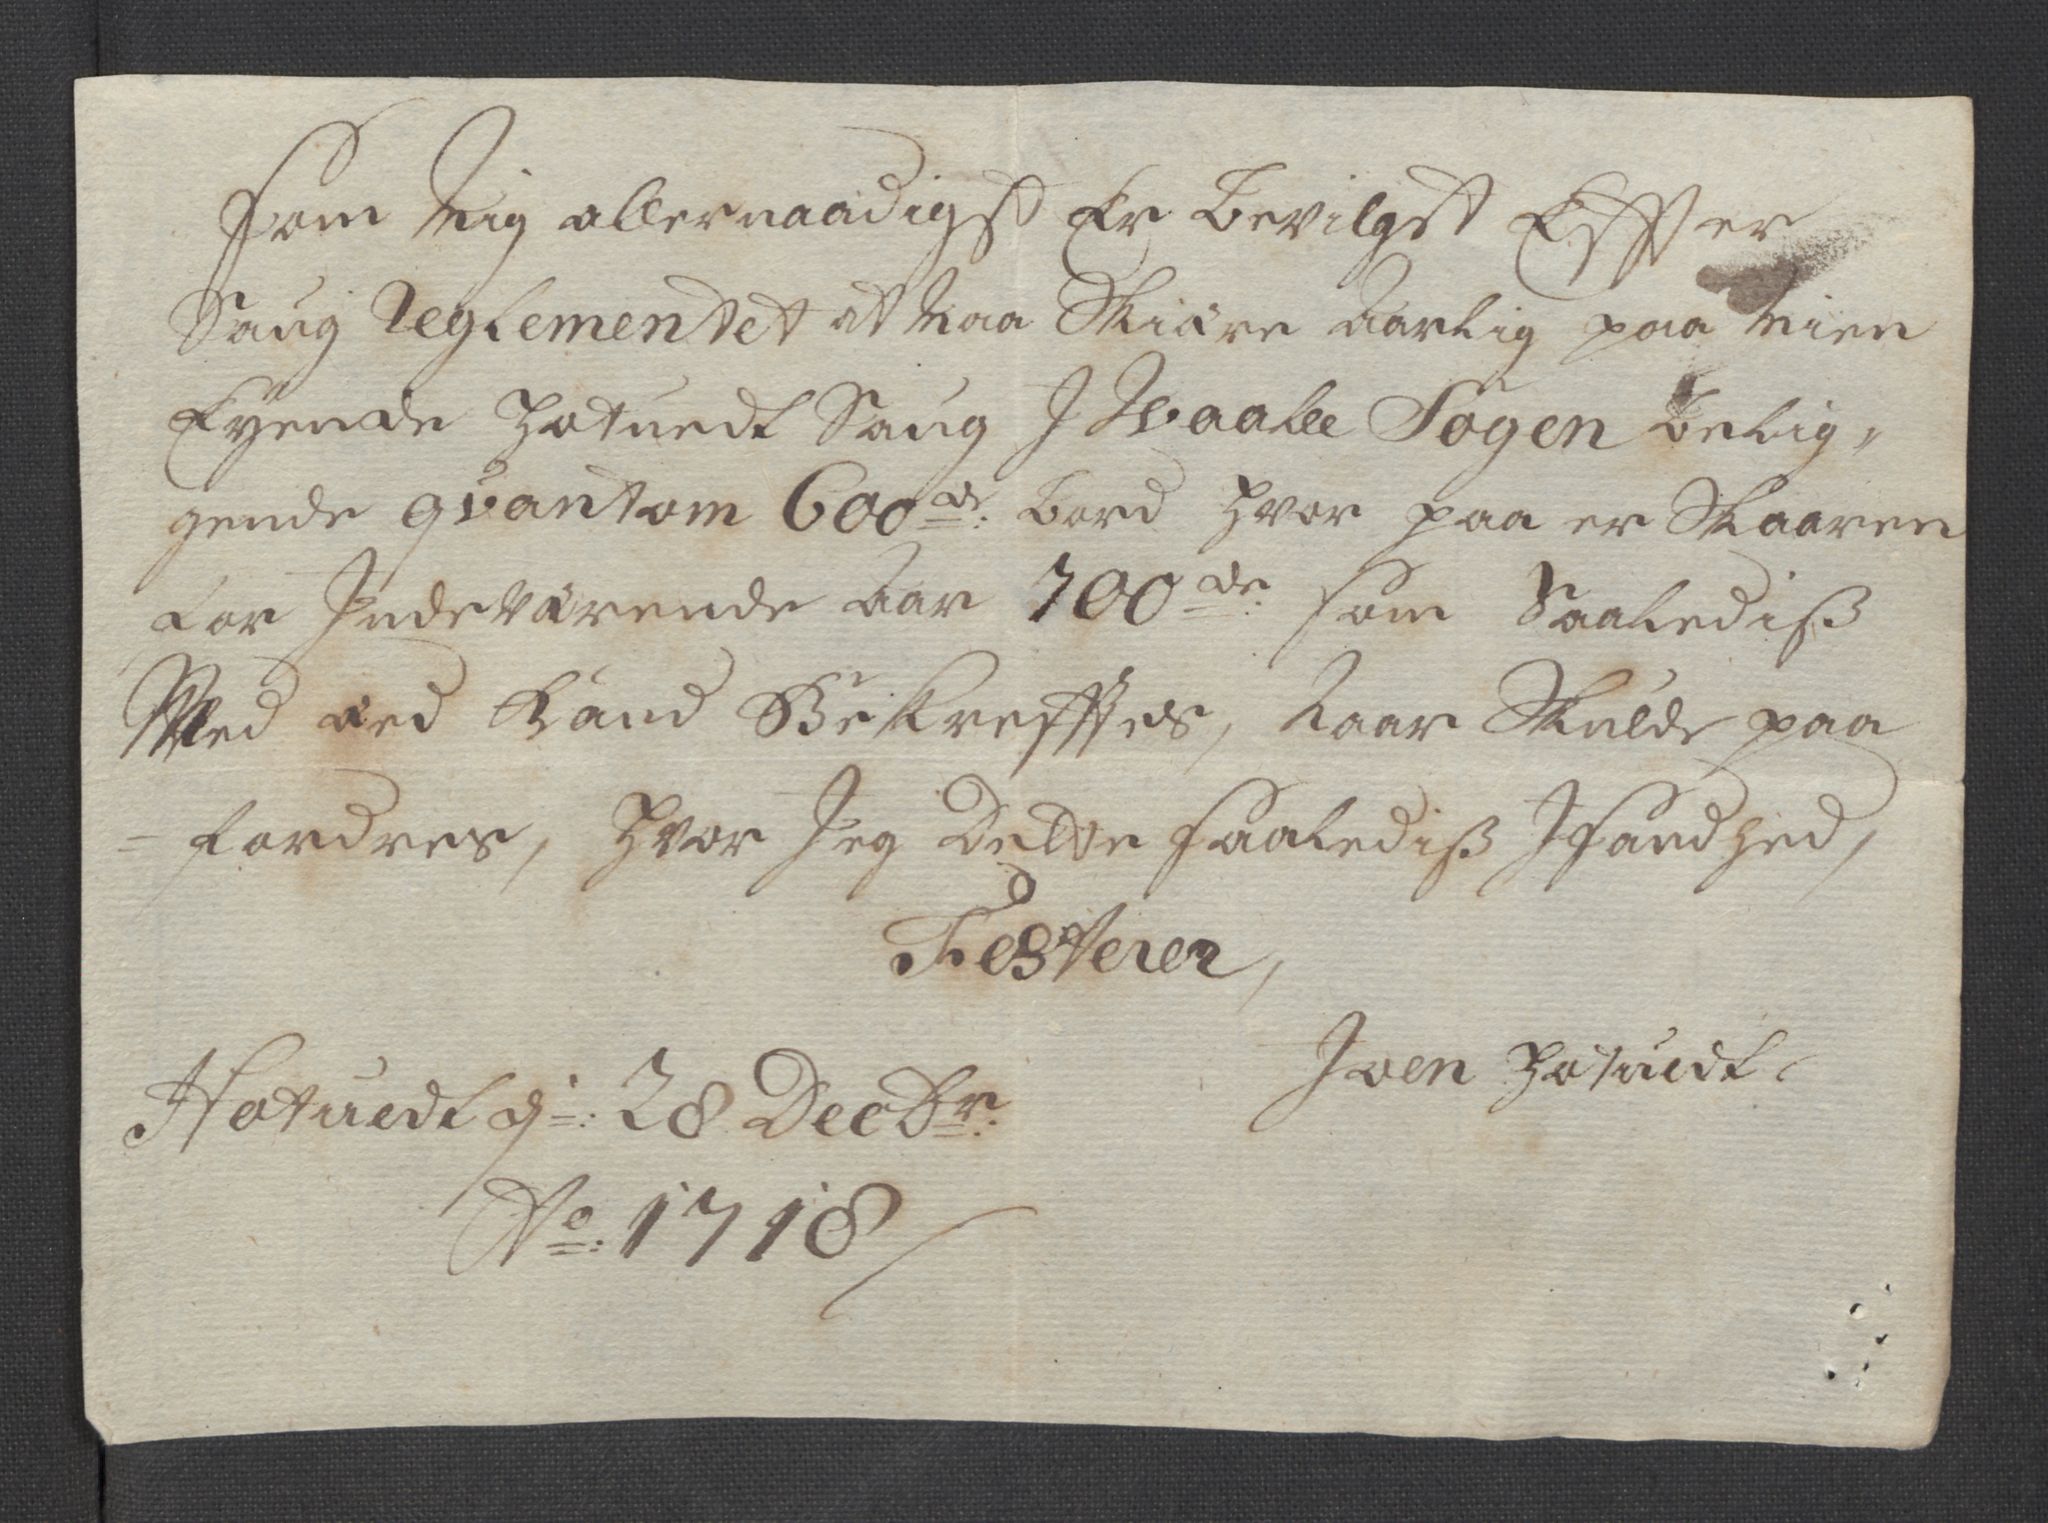 Som Mig allernaadigst Er Bevilgst Effter
Saug Reglementet at Maa Skiære Aarlig paa Mien
Eyende Hotuedt Saug J Waale Sogen Belig,
gende qvantom 600de: Bord Hvor paa er Skaaren
for Jndeværende Aar 700de: som Saalediß
Med æd Kand Bekrefftes, Naar Skulde paa
- fordres, Hvor Jeg Dette saalediß J Sandhed,
Testerer,
Joen Hotuedt
Hotuedt d: 28 Decbr:
Ao: 1718